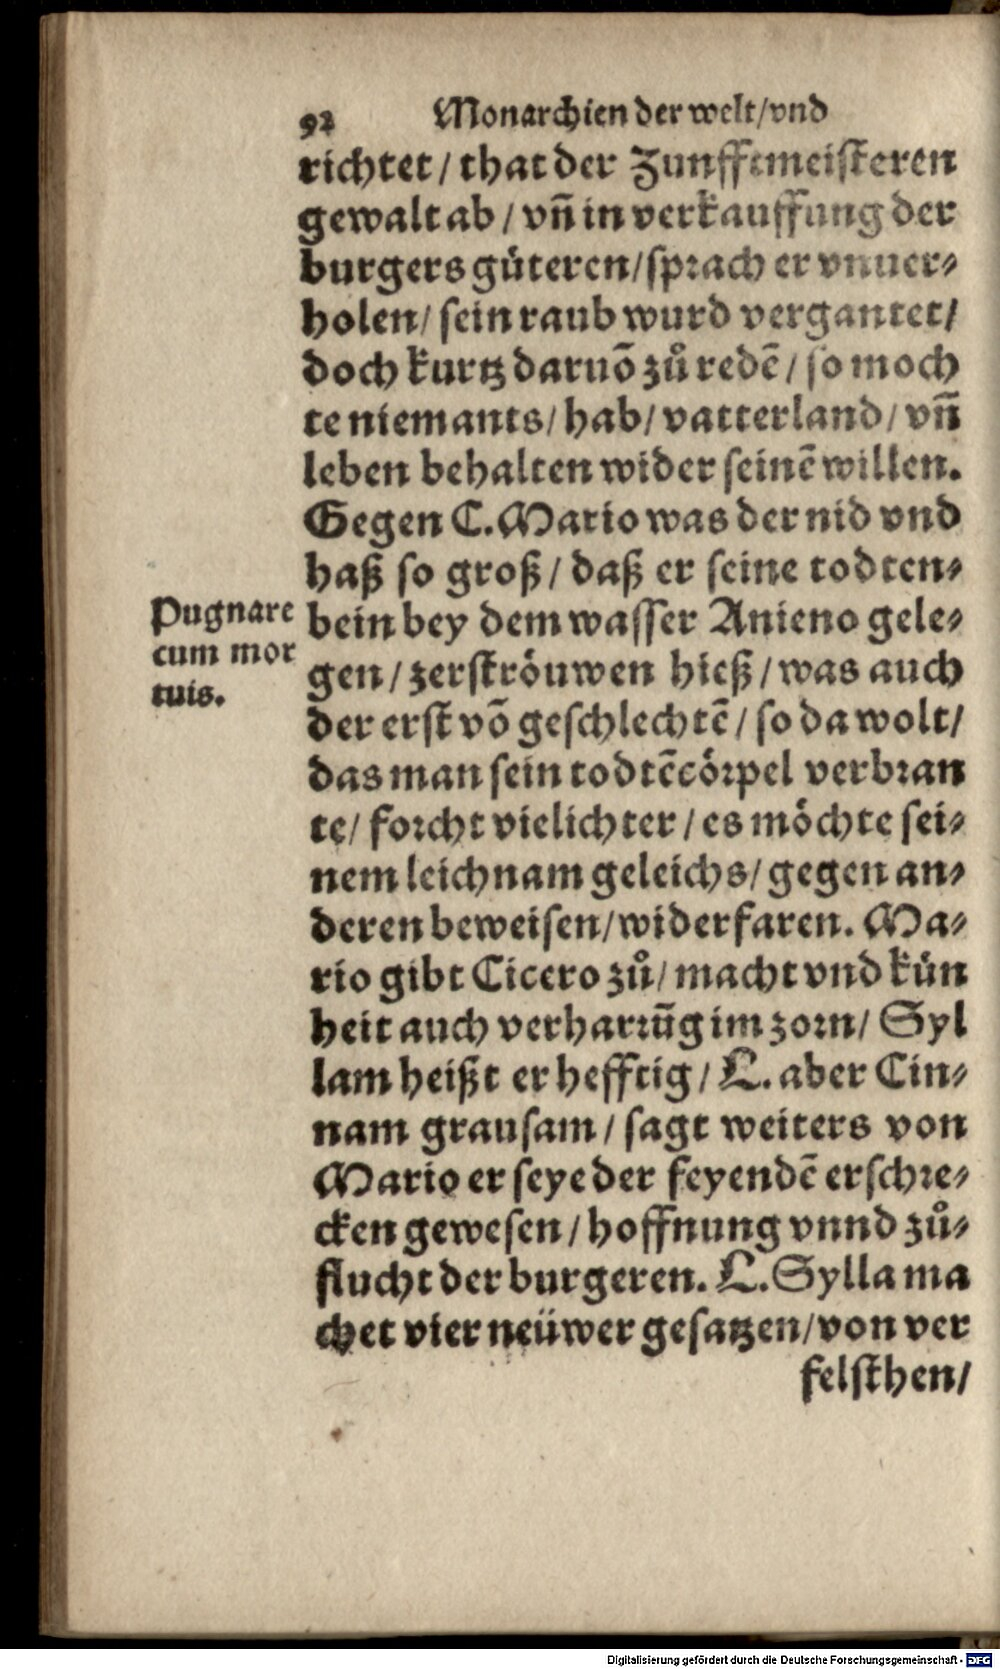 92 Monarchien der welt/vnd
richtet/ that der Zunfftmeisteren
gewalt ab/ vñ in verkauffung der
burgers güteren/sprach er vnuer⸗
holen/ sein raub wurd vergantet/
doch kurtz daruō zů redē/ so moch
te niemants/ hab/ vatterland/ vñ
leben behalten wider seinē willen.
Gegen C. Mario was der nid vnd
haß so groß/ daß er seine todten⸗
Pugnare
cum mor
tuis.
bein bey dem wasser Anieno gele⸗
gen/ zerströuwen hieß/ was auch
der erst vō geschlechtē/ so da wolt/
das man sein todtēcörpel verbran
te/ forcht vielichter/ es möchte sei⸗
nem leichnam geleichs/ gegen an⸗
deren beweisen/widerfaren. Ma⸗
rio gibt Cicero zů/ macht vnd kün
heit auch verharrūg im zorn/ Syl
lam heißt er hefftig/ L. aber Cin⸗
nam grausam/ sagt weiters von
Mario er seye der feyendē erschre⸗
cken gewesen/ hoffnung vnnd zů⸗
flucht der burgeren. L. Sylla ma
chet vier neüwer gesatzen/von ver
felsthen/
Digitalisierung gefördert durch die Deutsche Forschungsgemeinschaft - DFG